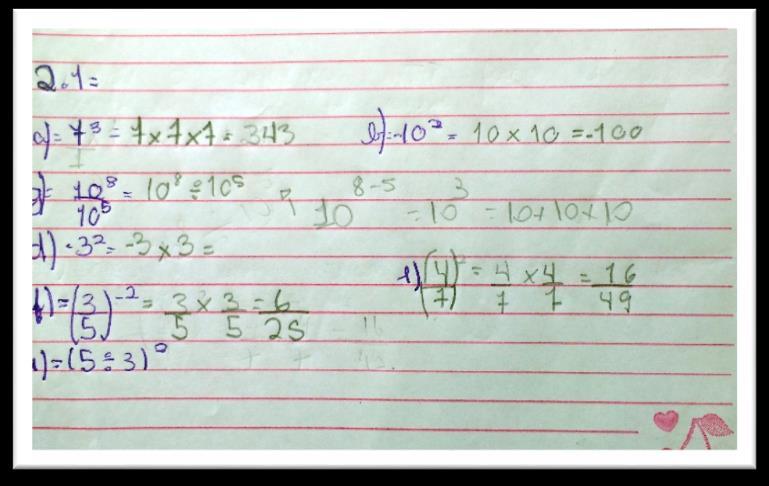 2.1=
a)= 7³ = 7×7×7 = 343
b)=-10² = 10 × 10 =-100
10⁸/10⁵ = 10⁸ ÷ 10⁵ 10⁸⁻⁵ = 10³ = 10×10×10
d) -3² = -3 × 3 =
e) (4/7)² = 4/7 × 4/7 = 16/49
f) = (3/5)⁻² = 3/5 × 3/5 = 6/25
= (5 ÷ 3)⁰